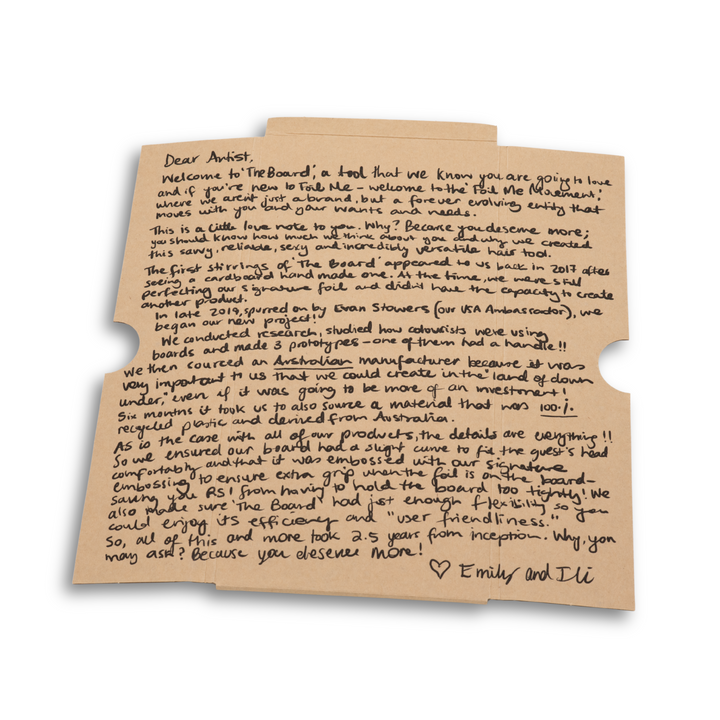 Dear Artist,
Welcome to 'The Board', a tool that we know you are going to love
and if you're new to Foil Me - welcome to the 'Foil Me Movement',
where we aren't just a brand, but a forever evolving entity that
moves with you and your wants and needs.
This is a little love note to you. Why? Because you deserve more;
you should know how much we think about you and why we created
this savvy, reliable, sexy and incredibly versatile hair tool.
The first stirrings of 'The Board' appeared to us back in 2017 after
seeing a cardboard hand made one. At the time, we were still
perfecting our signature foil and didn't have the capacity to create
another product.
In late 2019, spurred on by Evan Stowers (our USA Ambassador), we
began our new project!
We conducted research, studied how colourists were using
boards and made 3 prototypes - one of them had a handle!!
We then sourced an Australian manufacturer because it was
very important to us that we could create in the "land of down
under," even if it was going to be more of an investment!
Six months it took us to also source a material that was 100%
recycled plastic and derived from Australia.
As is the case with all of our products, the details are everything!!
So we ensured our board had a slight curve to fit the guest's head
comfortably and that it was embossed with our signature
embossing to ensure extra grip when the foil is on the board -
saving you RSI from having to hold the board too tightly! We
also made sure 'The Board' had just enough flexibility so you
could enjoy its efficiency and "user friendliness."
So, all of this and more took 2.5 years from inception. Why, you
may ask? Because you deserve more!
♡ Emily and Ili